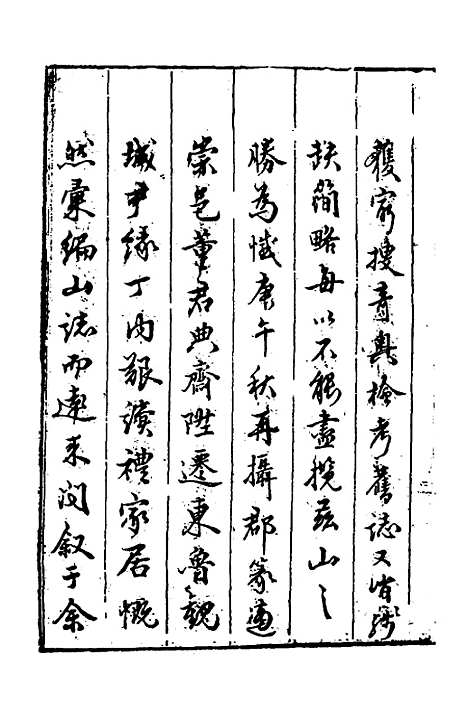 獲窮搜奇奧檢考舊誌又皆殘
缺簡略每以不能盡攬茲山之
勝為憾庚午秋再攝郡篆適
崇邑董君典齋陞遷東魯魏
城尹緣丁內艱讀禮家居慨
然彙編山誌而遠來問叙于余